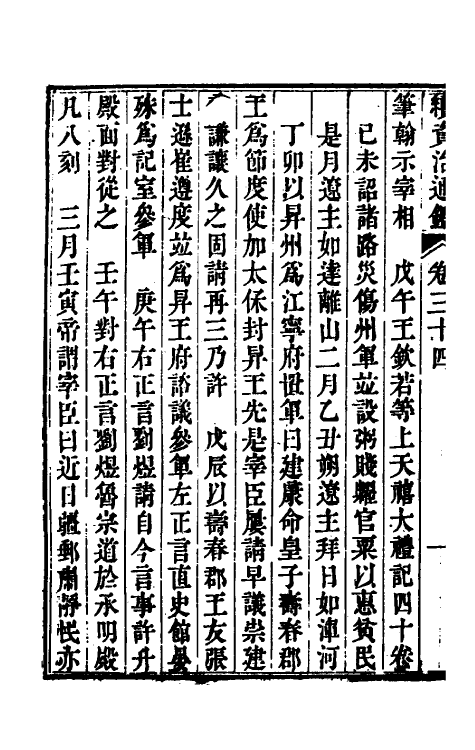 續資治通鑑 卷三十四 一
筆翰示宰相 戊午王欽若等上天禧大禮記四十卷
己未詔諸路災傷州軍並設粥賤糶官粟以惠貧民
是月遼主如達離山二月乙丑朔遼主拜日如渾河
丁卯以昇州爲江寧府置軍曰建康命皇子壽春郡
王爲節度使加太保封昇王先是宰臣屢請早議崇建
帝謙讓久之固請再三乃許 戊辰以壽春郡王友張
士遜崔遵度竝爲昇王府諮議參軍左正言直史館晏
殊爲記室參軍 庚午右正言劉煜請自今言事許升
殿面對從之 壬午對右正言劉煜魯宗道於承明殿
凡八刻 三月壬寅帝謂宰臣曰近日疆郵肅靜民亦